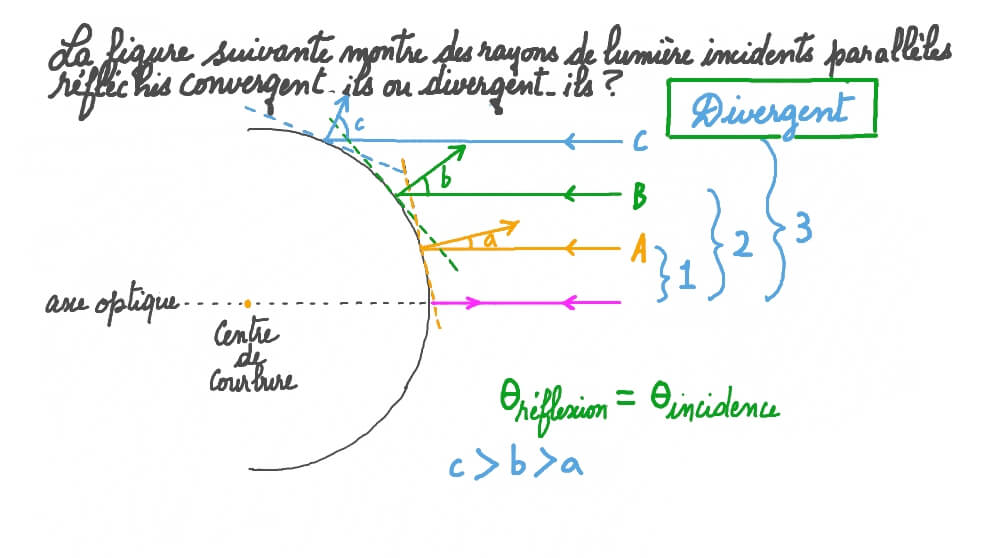 La figure suivante montre des rayons de lumière incidents parallèles
réfléchis convergent-ils ou divergent-ils ?
Divergent
c
C
b
B
a
A
1
2
3
axe optique
Centre
de
Courbure
θréflexion = θincidence
c > b > a